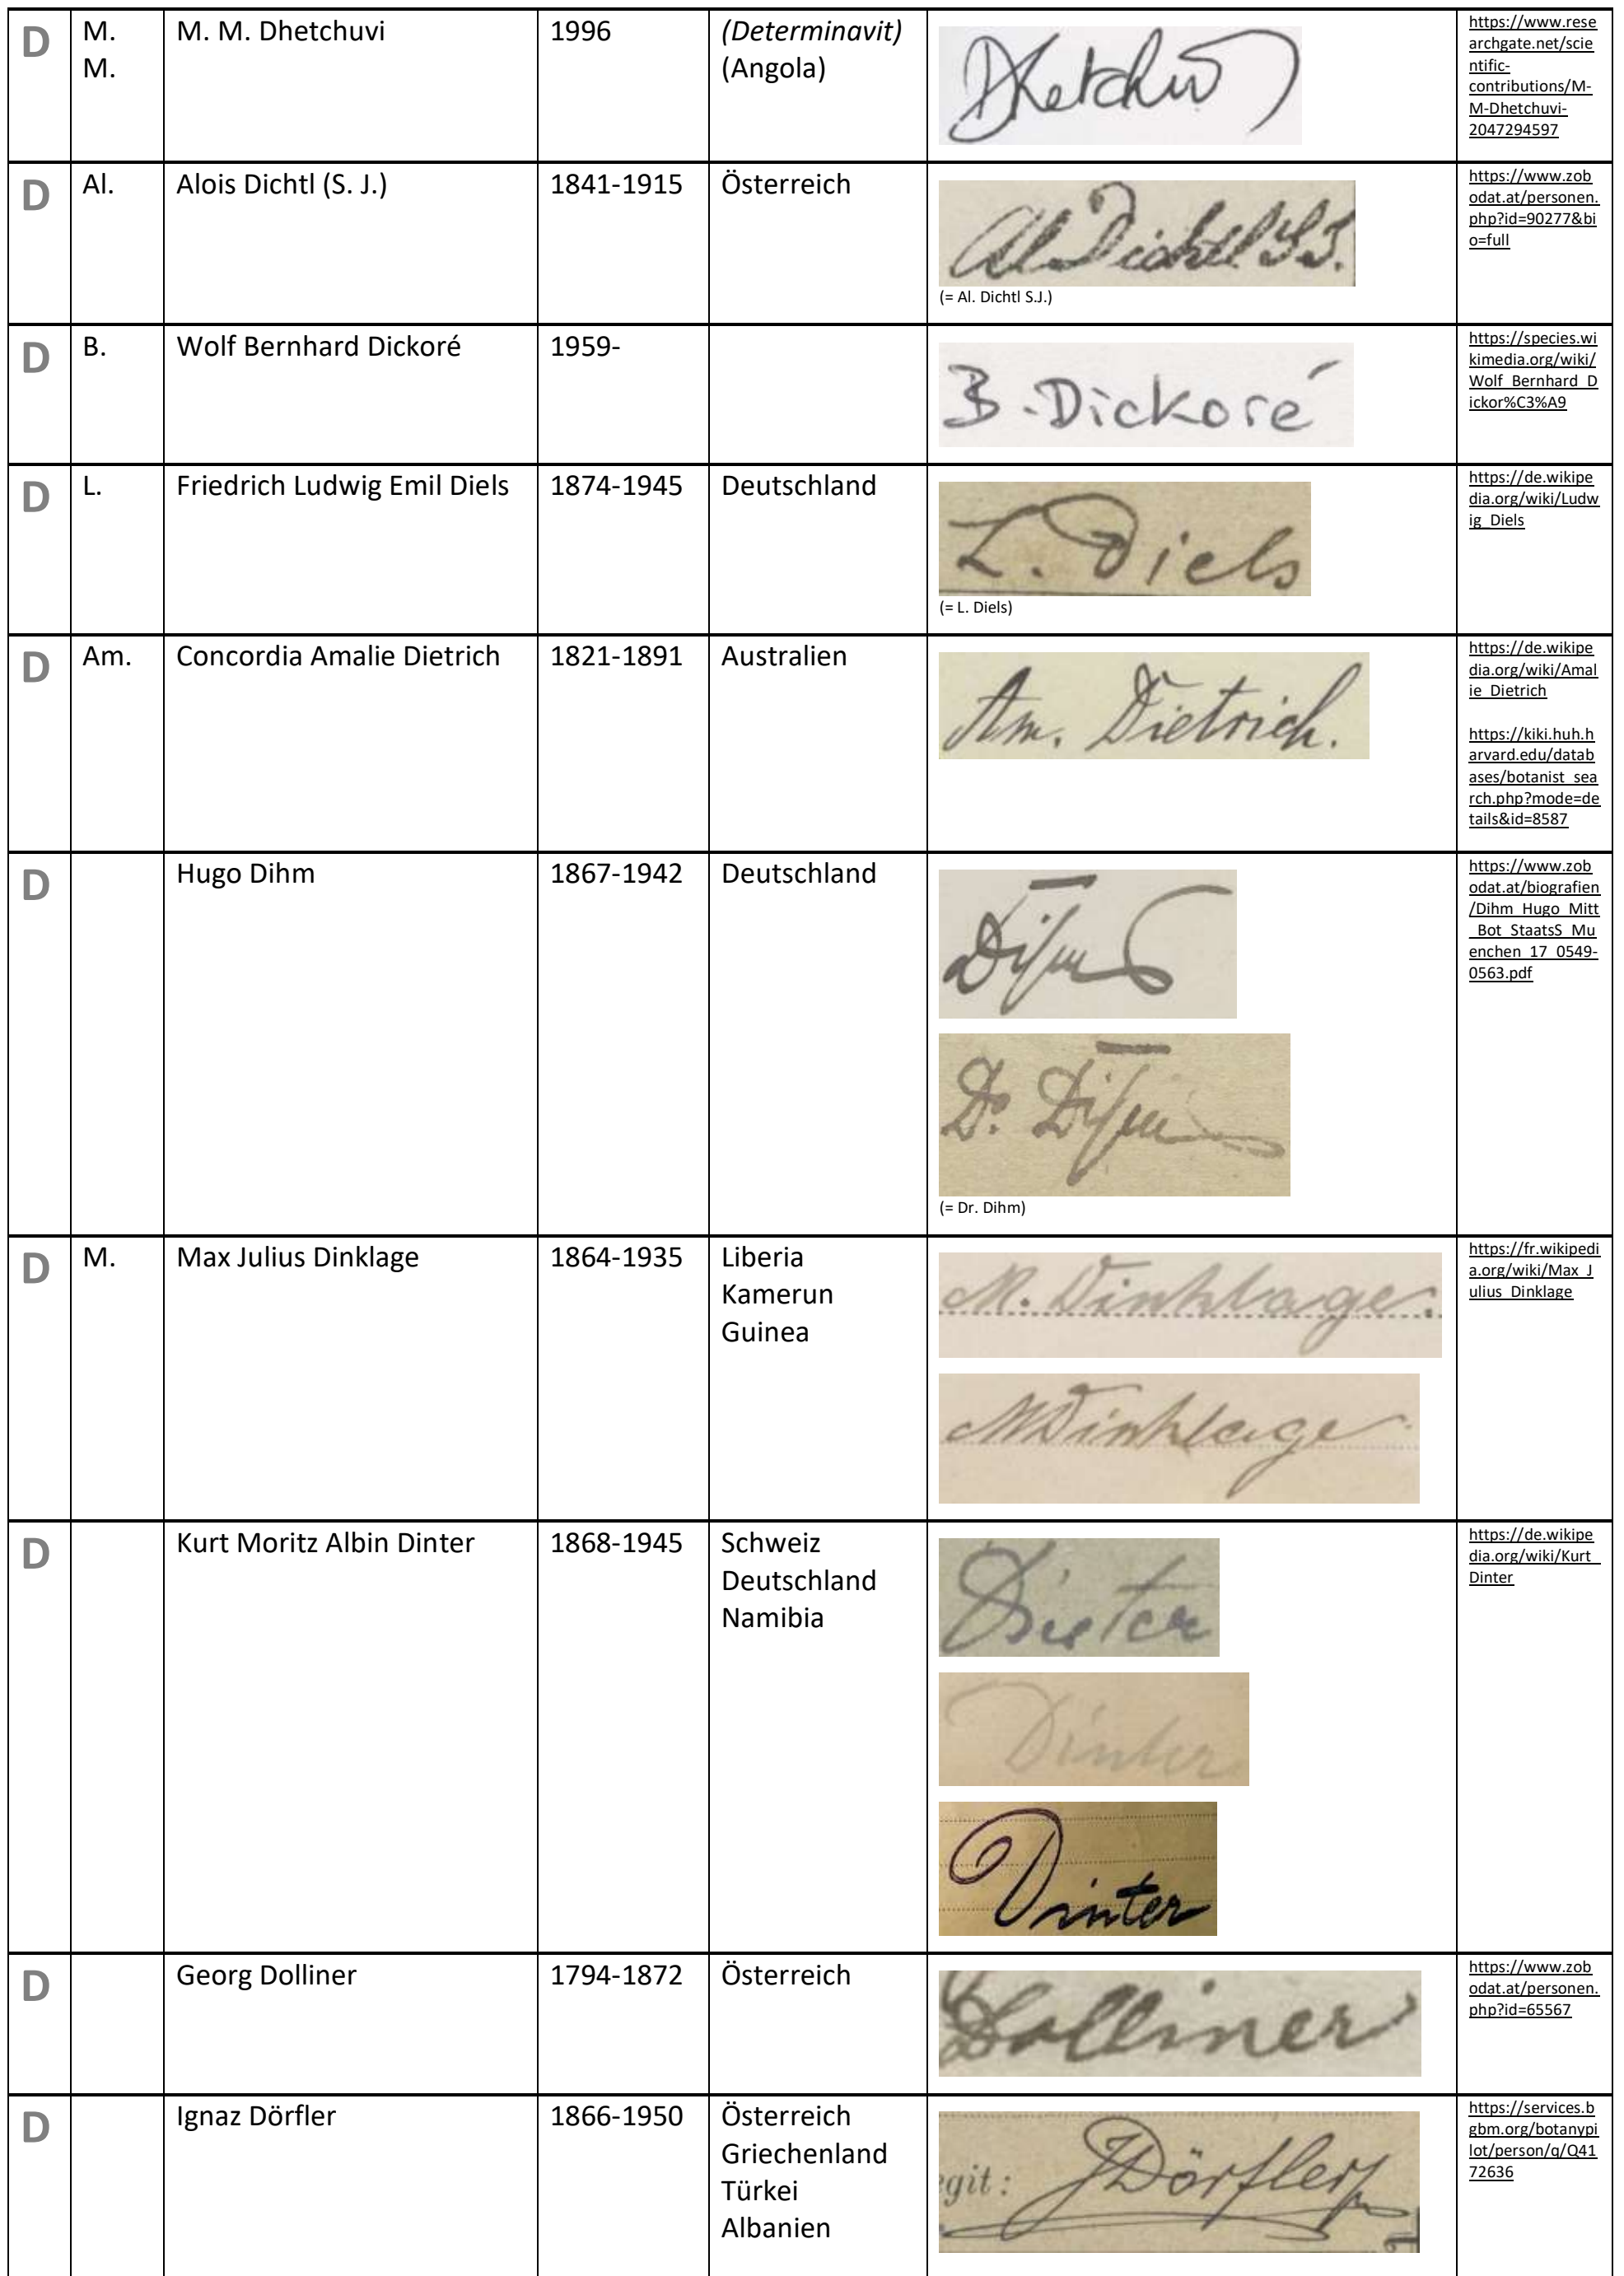 D
M.
M.
M. M. Dhetchuvi
1996
(Determinavit)
(Angola)
Dhetchuvi
https://www.rese
archgate.net/scie
ntific-
contributions/M-
M-Dhetchuvi-
2047294597
D
Al.
Alois Dichtl (S. J.)
1841-1915
Österreich
Al Dichtl S.J.
(= Al. Dichtl S.J.)
https://www.zob
odat.at/personen.
php?id=90277&bi
o=full
D
B.
Wolf Bernhard Dickoré
1959-
B. Dickoré
https://species.wi
kimedia.org/wiki/
Wolf_Bernhard_D
ickor%C3%A9
D
L.
Friedrich Ludwig Emil Diels
1874-1945
Deutschland
L. Diels
(= L. Diels)
https://de.wikipe
dia.org/wiki/Ludw
ig_Diels
D
Am.
Concordia Amalie Dietrich
1821-1891
Australien
Am. Dietrich.
https://de.wikipe
dia.org/wiki/Amal
ie_Dietrich
https://kiki.huh.h
arvard.edu/datab
ases/botanist_sea
rch.php?mode=de
tails&id=8587
D
Hugo Dihm
1867-1942
Deutschland
Dihm
Dr. Dihm
(= Dr. Dihm)
https://www.zob
odat.at/biografien
/Dihm_Hugo_Mitt
_Bot_StaatsS_Mu
enchen_17_0549-
0563.pdf
D
M.
Max Julius Dinklage
1864-1935
Liberia
Kamerun
Guinea
M. Dinklage.
M Dinklage
https://fr.wikipedi
a.org/wiki/Max_J
ulius_Dinklage
D
Kurt Moritz Albin Dinter
1868-1945
Schweiz
Deutschland
Namibia
Dinter
Dinter
Dinter
https://de.wikipe
dia.org/wiki/Kurt_
Dinter
D
Georg Dolliner
1794-1872
Österreich
Dolliner
https://www.zob
odat.at/personen.
php?id=65567
D
Ignaz Dörfler
1866-1950
Österreich
Griechenland
Türkei
Albanien
egit: J Dörfler
https://services.b
gbm.org/botanypi
lot/person/q/Q41
72636